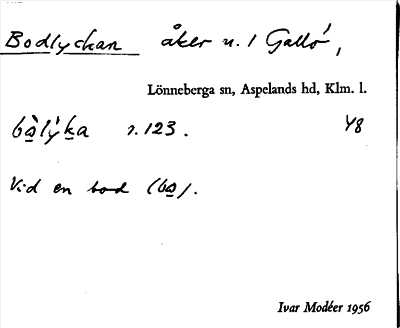 Bodlyckan åker n. 1 Gallö,
Lönneberga sn, Aspelands hd, Klm. l.
bàlýka s. 123. 48
Vid en bod (ba).
Ivar Modéer 1956